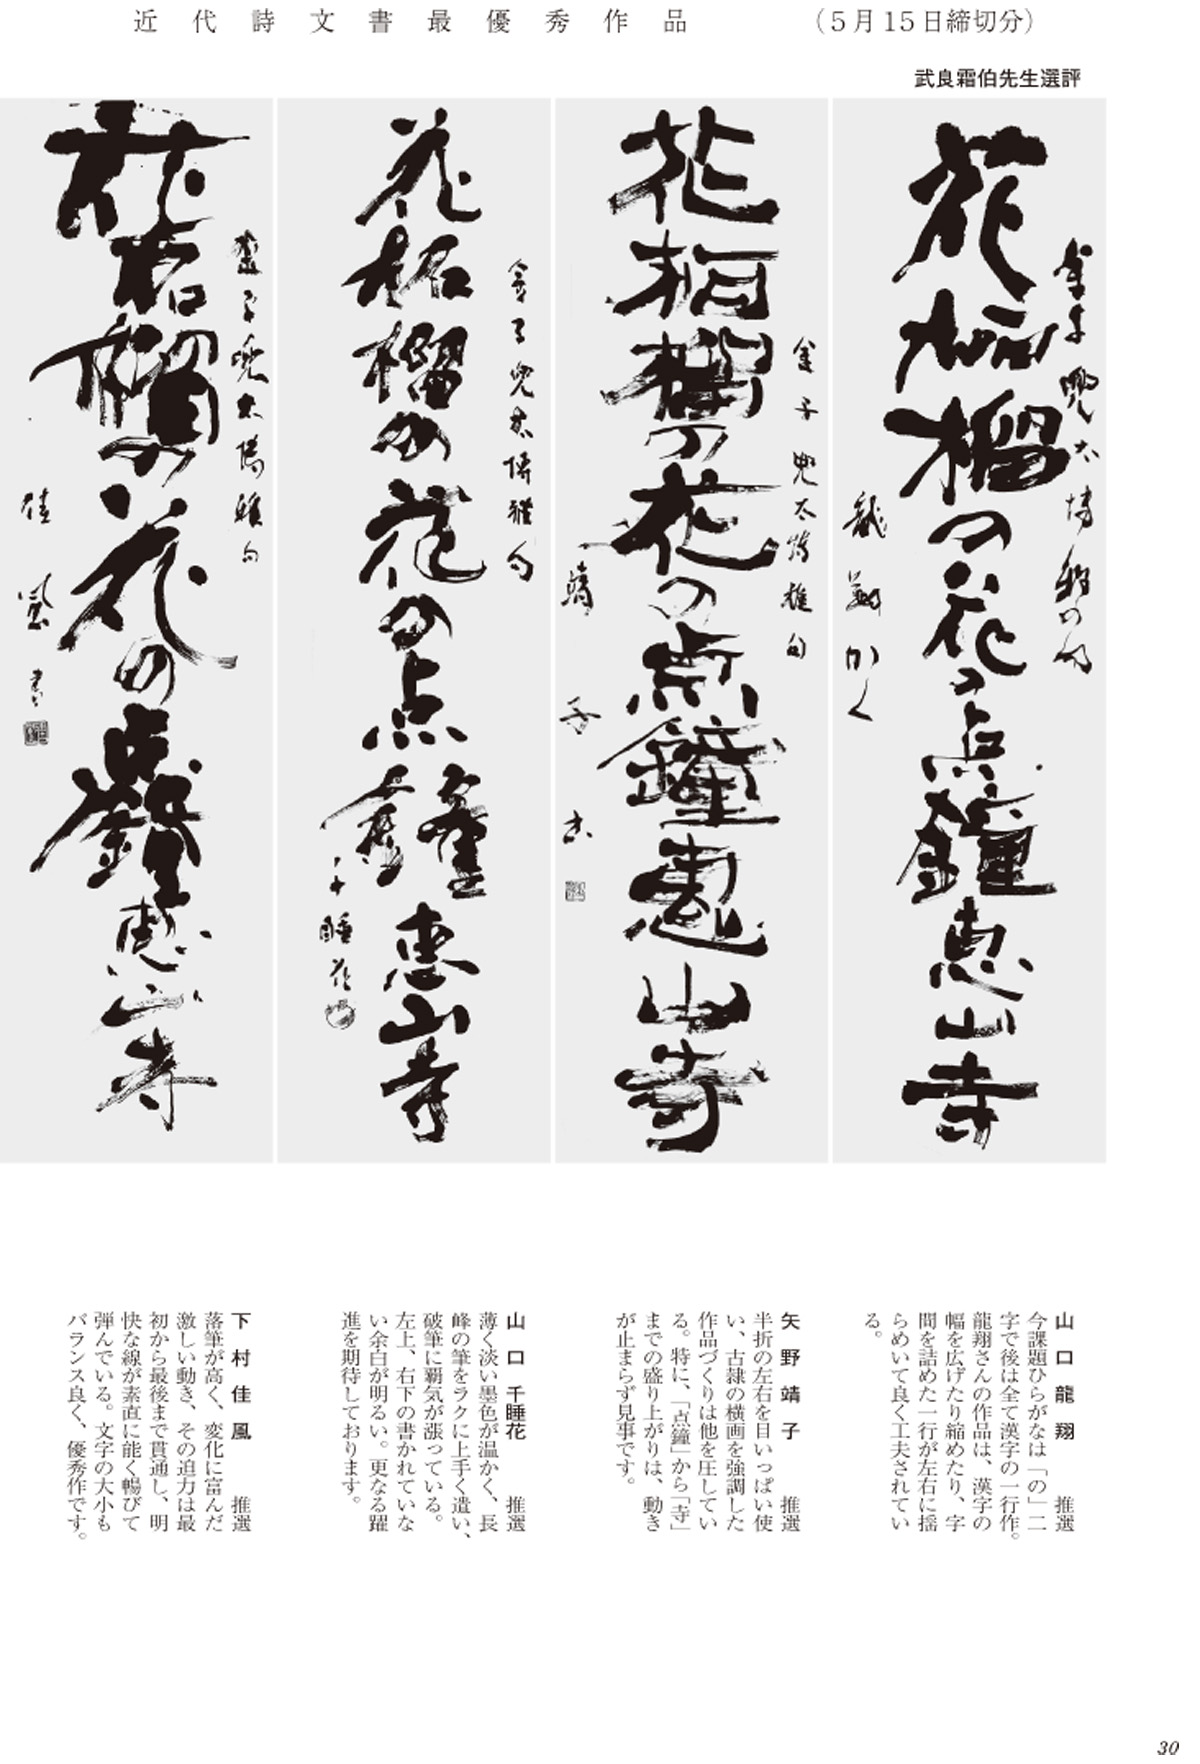 近代詩文書最優秀作品
（5月15日締切分）
武良霜伯先生選評
花柘榴の花の点鐘恵山寺
金子兜太博雅の句
龍翔かく
花柘榴の花の点鐘恵山寺
金子兜太
靖子
花柘榴の花の点鐘恵山寺
金子兜太博雅句
千睡花
花柘榴の花の点鐘恵山寺
金子兜太
佳風書
山口龍翔　推選
今課題ひらがなは「の」二
字で後は全て漢字の一行作。
龍翔さんの作品は、漢字の
幅を広げたり縮めたり、字
間を詰めた一行が左右に揺
らめいて良く工夫されてい
る。
矢野靖子　推選
半折の左右を目いっぱい使
い、古隷の横画を強調した
作品づくりは他を圧してい
る。特に、「点鐘」から「寺」
までの盛り上がりは、動き
が止まらず見事です。
山口千睡花　推選
薄く淡い墨色が温かく、長
峰の筆をラクに上手く遣い、
破筆に覇気が漲っている。
左上、右下の書かれていな
い余白が明るい。更なる躍
進を期待しております。
下村佳風　推選
落筆が高く、変化に富んだ
激しい動き、その迫力は最
初から最後まで貫通し、明
快な線が素直に能く暢びて
弾んでいる。文字の大小も
バランス良く、優秀作です。
30